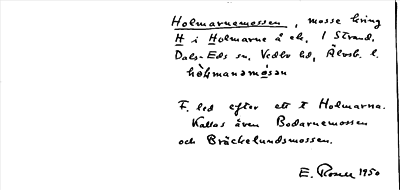 Holmarnemossen, mosse kring
H i Holmarne å ek. 1 Strand,
Dals-Eds sn, Vedbo hd, Älvsb. l.
hòłmanamósan
F. led efter ett † Holmarna.
Kallas även Bodarnemossen
och Bräckelundsmossen.
E. 1950